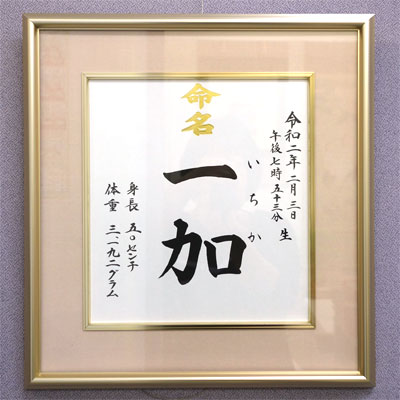 令和二年二月三日
午後七時五十三分 生
命名
一加
いちか
身長 五〇センチ
体重 三、一九二グラム